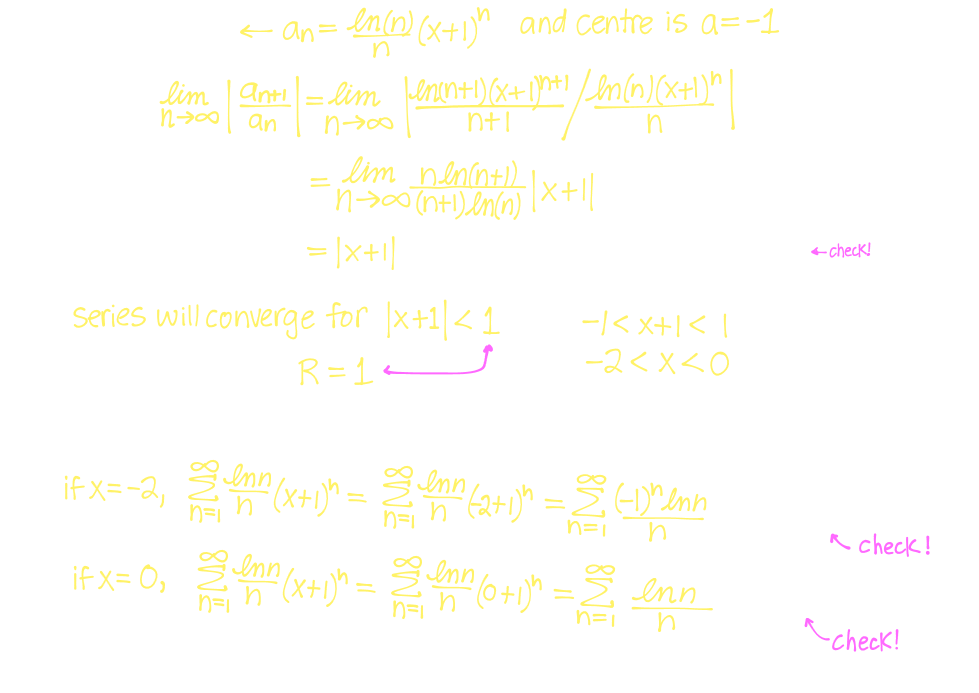 ← aₙ = ln(n)/n (x+1)ⁿ and centre is a = -1
lim n→∞ |aₙ₊₁/aₙ| = lim n→∞ |ln(n+1)(x+1)ⁿ⁺¹/n+1 / ln(n)(x+1)ⁿ/n|
= lim n→∞ n ln(n+1)/(n+1)ln(n) |x+1|
= |x+1| ← check!
series will converge for |x+1| < 1 -1 < x+1 < 1
R = 1 -2 < x < 0
if x = -2, ∞ ∑ n=1 lnn/n (x+1)ⁿ = ∞ ∑ n=1 lnn/n (-2+1)ⁿ = ∞ ∑ n=1 (-1)ⁿ lnn/n
check!
if x = 0, ∞ ∑ n=1 lnn/n (x+1)ⁿ = ∞ ∑ n=1 lnn/n (0+1)ⁿ = ∞ ∑ n=1 lnn/n
check!